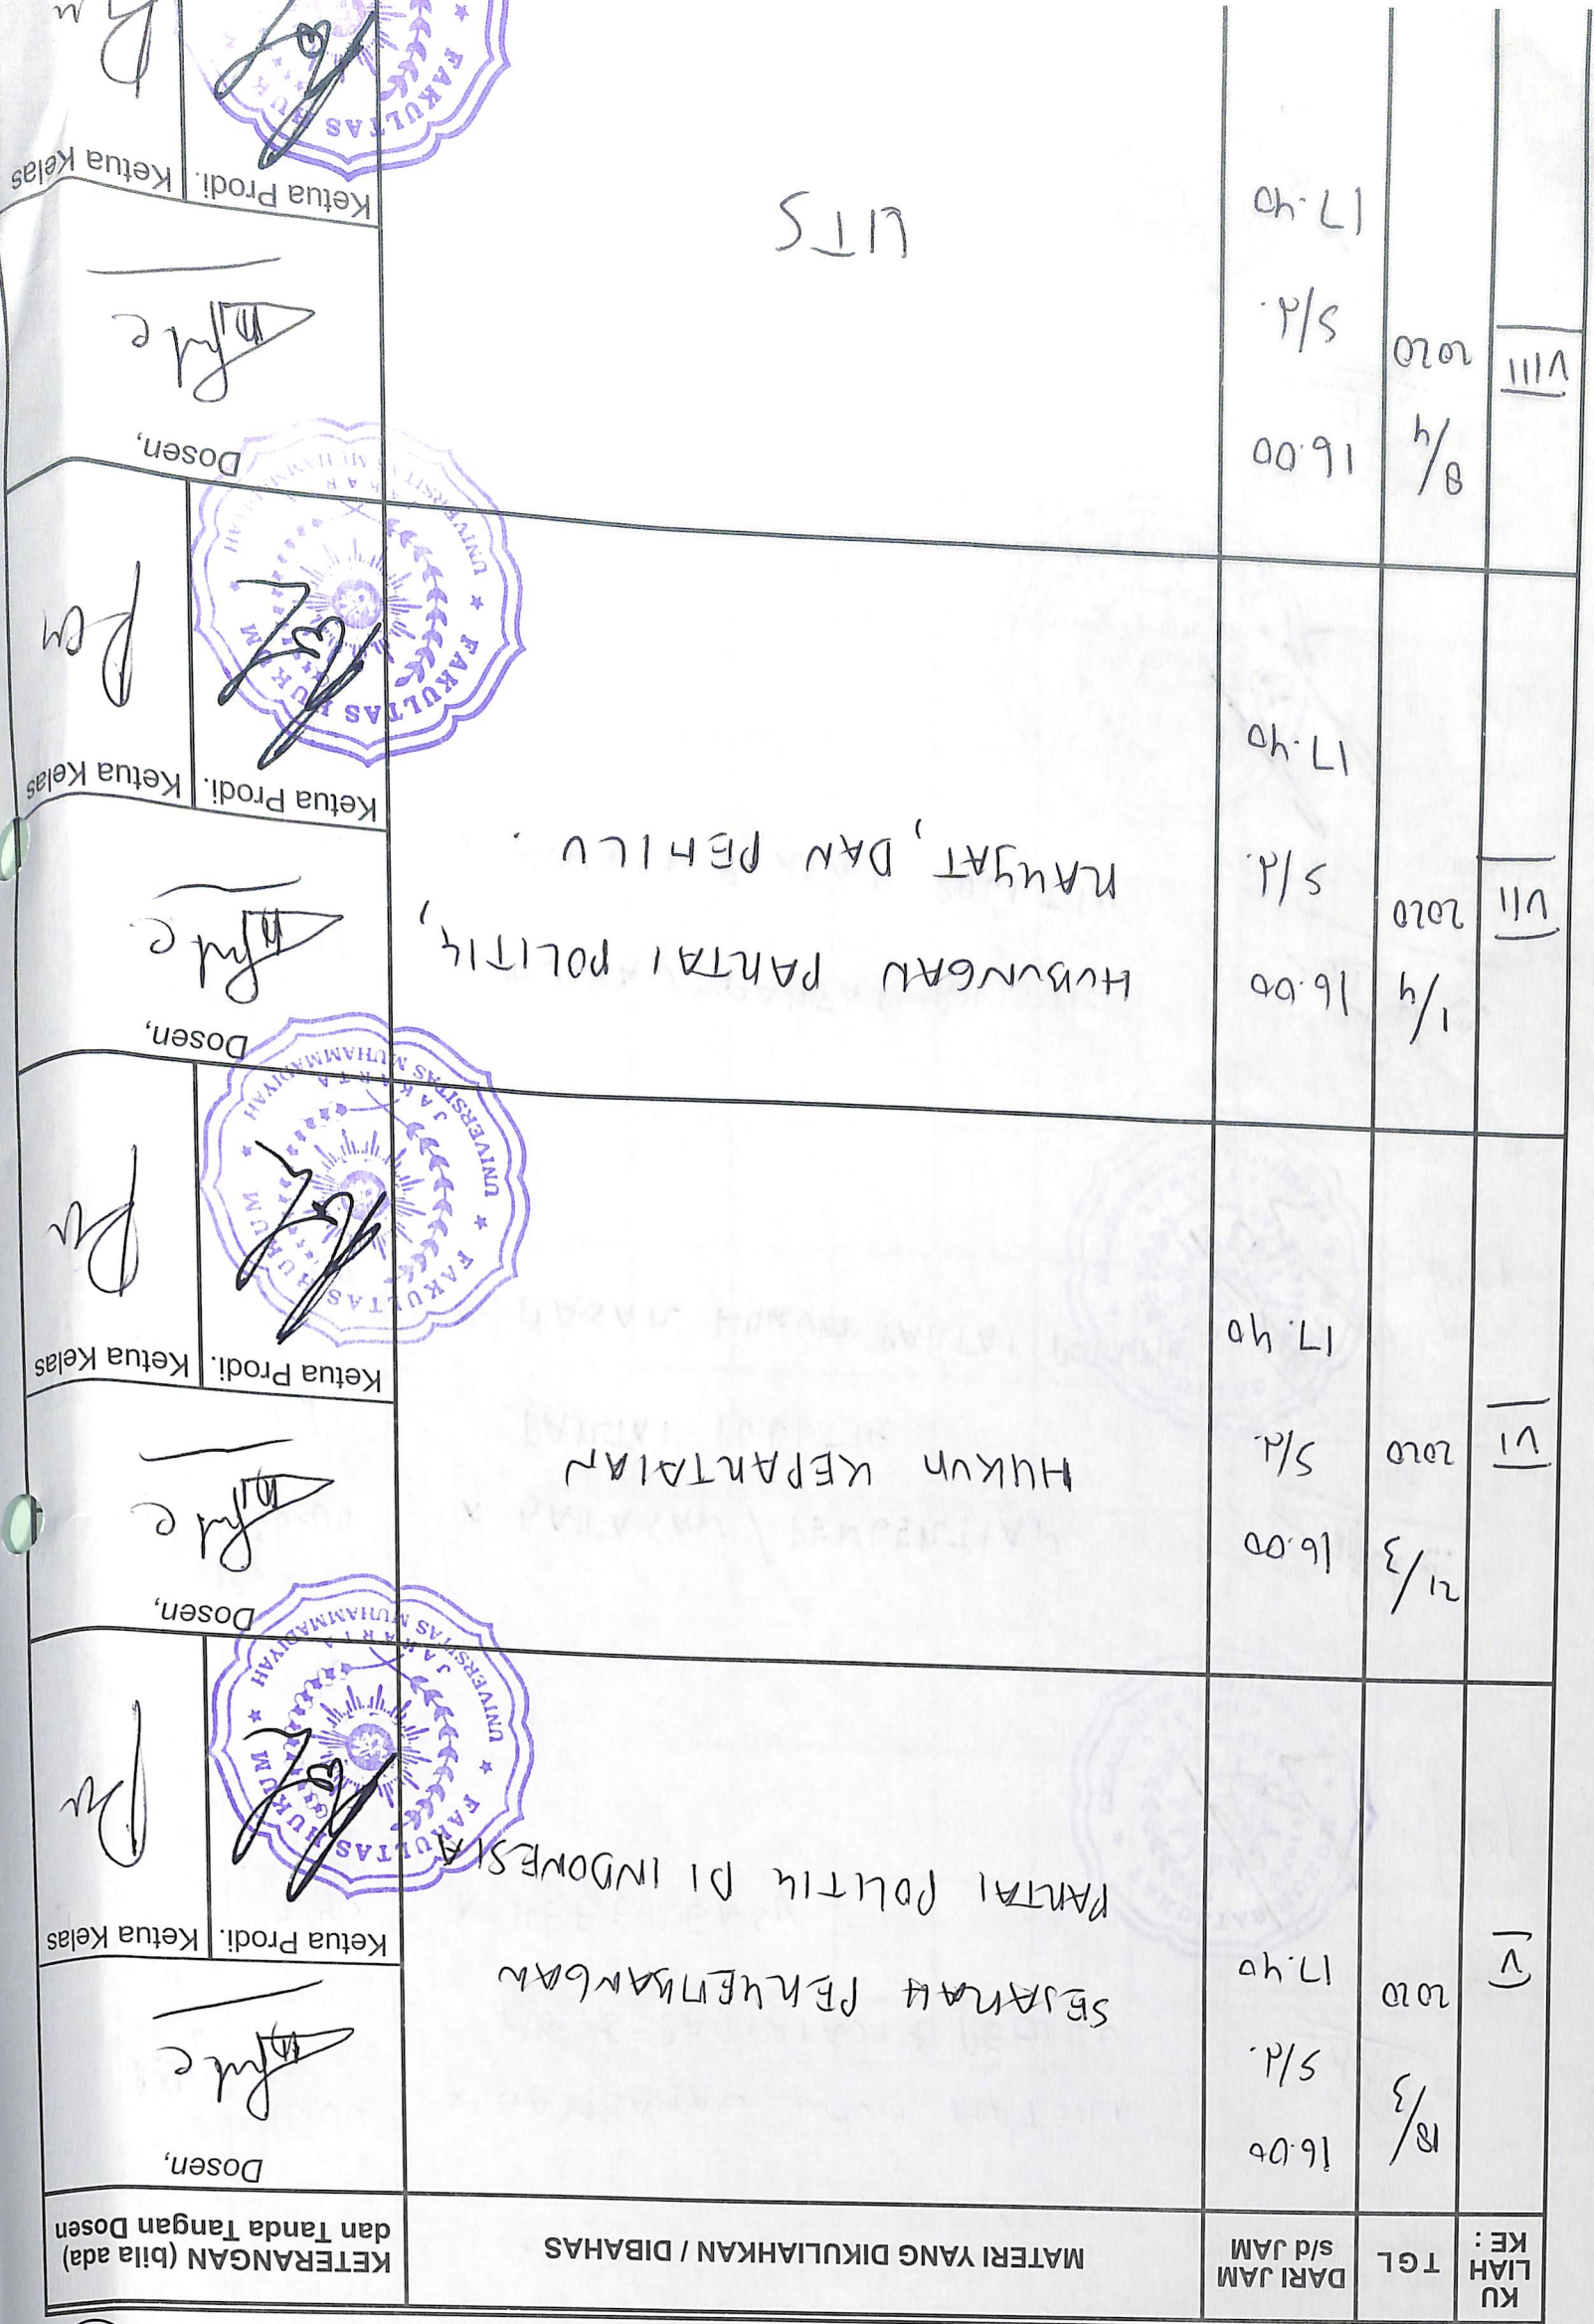 KU
LIAH
KE :
TGL
DARI JAM
s/d JAM
MATERI YANG DIKULIAHKAN / DIBAHAS
KETERANGAN (bila ada)
dan Tanda Tangan Dosen
V
18/3
2020
16.00
s/d.
17.40
SEJARAH PERKEMBANGAN
PARTAI POLITIK DI INDONESIA
Dosen,
Ketua Prodi.
Ketua Kelas
FAKULTAS HUKUM
UNIVERSITAS MUHAMMADIYAH
JAKARTA
VI
21/3
2020
16.00
s/d.
17.40
HUKUM KEPARTAIAN
Dosen,
Ketua Prodi.
Ketua Kelas
FAKULTAS HUKUM
UNIVERSITAS MUHAMMADIYAH
JAKARTA
VII
1/4
2020
16.00
s/d.
17.40
HUBUNGAN PARTAI POLITIK,
RAKYAT, DAN PEMILU.
Dosen,
Ketua Prodi.
Ketua Kelas
FAKULTAS HUKUM
UNIVERSITAS MUHAMMADIYAH
JAKARTA
VIII
8/4
2020
16.00
s/d.
17.40
UTS
Dosen,
Ketua Prodi.
Ketua Kelas
FAKULTAS HUK